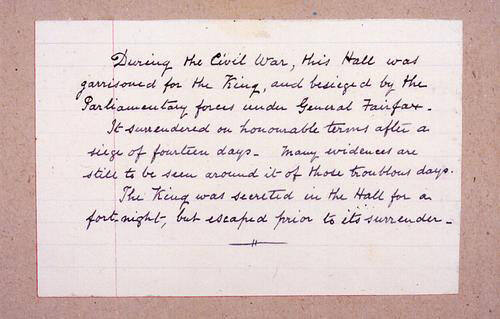 During the Civil War, this Hall was
garrisoned for the King, and besieged by the
Parliamentary forces under General Fairfax.
It surrendered on honourable terms after a
siege of fourteen days. Many evidences are
still to be seen around it of those troublous days.
The King was secreted in the Hall for a
fort-night, but escaped prior to its surrender.